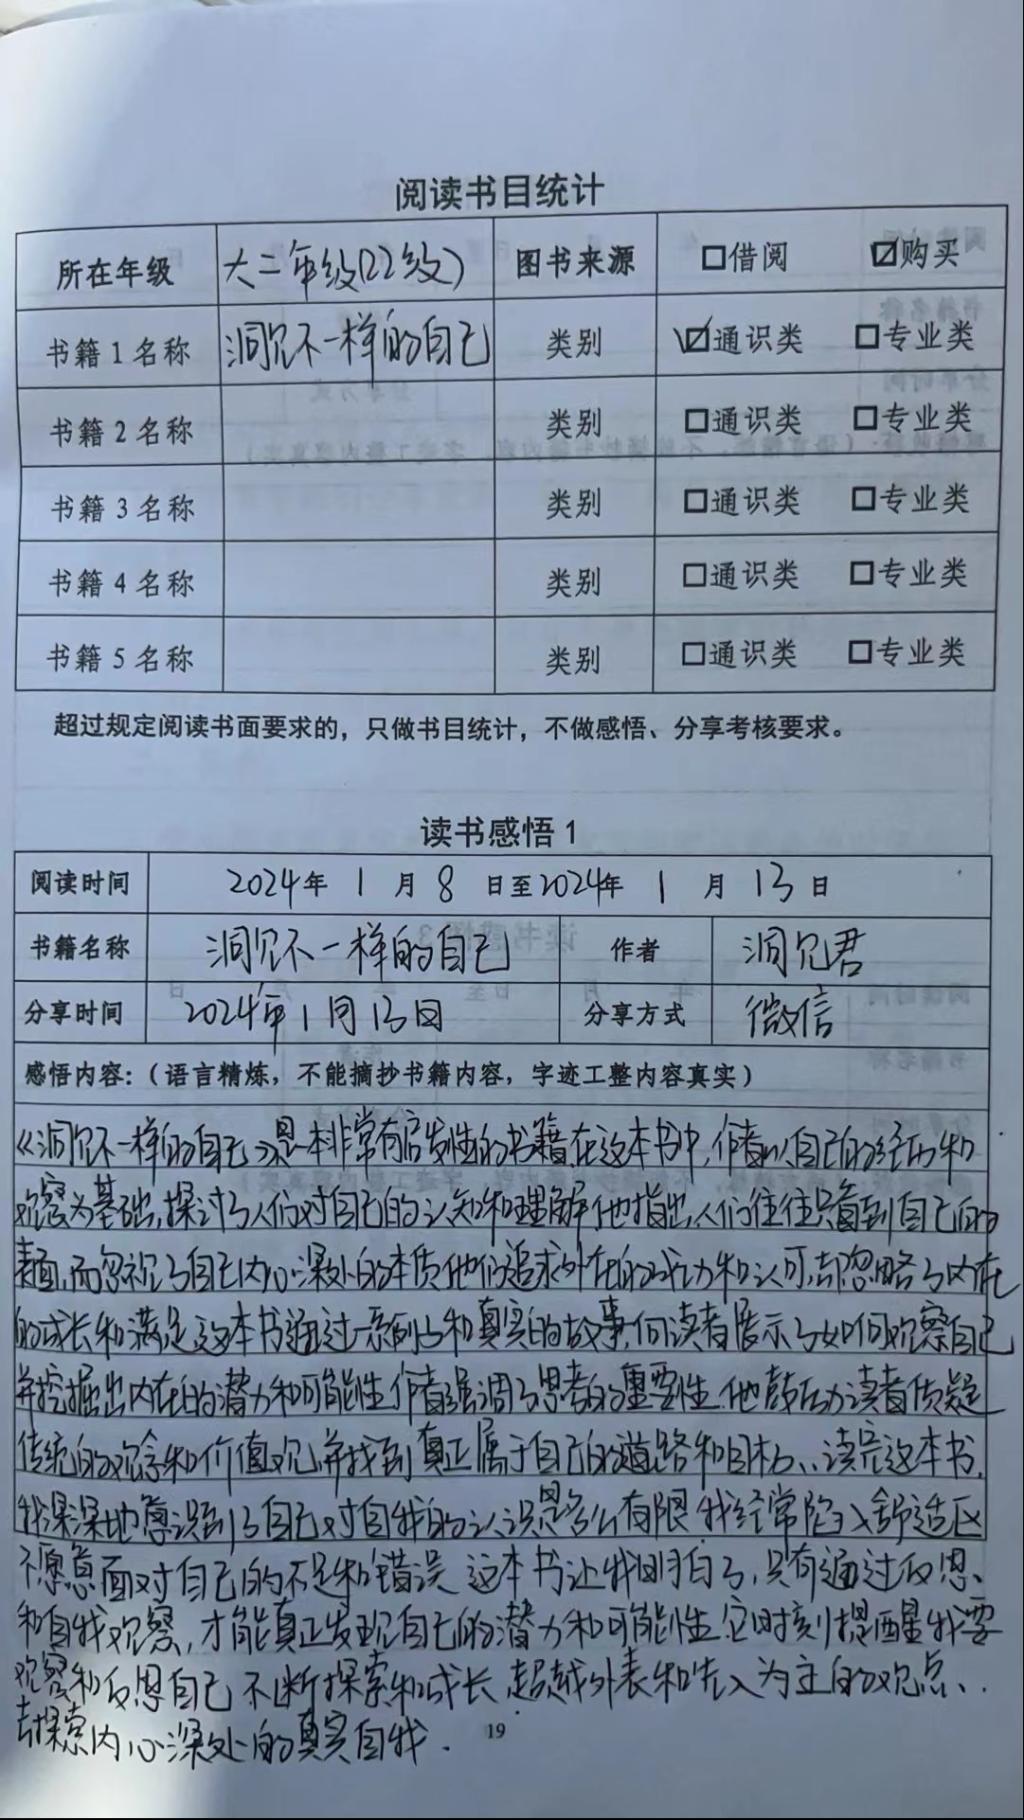 阅读书目统计
所在年级 大二年级(22级) 图书来源 □借阅 ☑购买
书籍1名称 洞见不一样的自己 类别 ☑通识类 □专业类
书籍2名称 类别 □通识类 □专业类
书籍3名称 类别 □通识类 □专业类
书籍4名称 类别 □通识类 □专业类
书籍5名称 类别 □通识类 □专业类
超过规定阅读书面要求的，只做书目统计，不做感悟、分享考核要求。
读书感悟1
阅读时间 2024年 1 月 8 日至2024年 1 月 13 日
书籍名称 洞见不一样的自己 作者 洞见君
分享时间 2024年1月13日 分享方式 微信
感悟内容：（语言精炼，不能摘抄书籍内容，字迹工整内容真实）
《洞见不一样的自己》是一本非常有启发性的书籍.在这本书中,作者以自己的经历和
观察为基础,探讨了人们对自己的认知和理解.他指出,人们往往只看到自己的
表面,而忽视了自己内心深处的本质他们追求外在的成功和认可,却忽略了内在
的成长和满足.这本书通过一系列 和真实的故事,向读者展示了如何观察自己
并挖掘出内在的潜力和可能性.作者强调了思考的重要性.他鼓励读者质疑
传统的观念和价值观,并找到真正属于自己的道路和目标..读完这本书,
我深深地意识到了自己对自我的认识是多么有限.我经常陷入舒适区
不愿意面对自己的不足和错误.这本书让我明白了,只有通过反思、
和自我观察,才能真正发现自己的潜力和可能性.它时刻提醒我要
观察和反思自己.不断探索和成长.超越外表和先入为主的观点、.
去探索内心深处的真实自我.
19